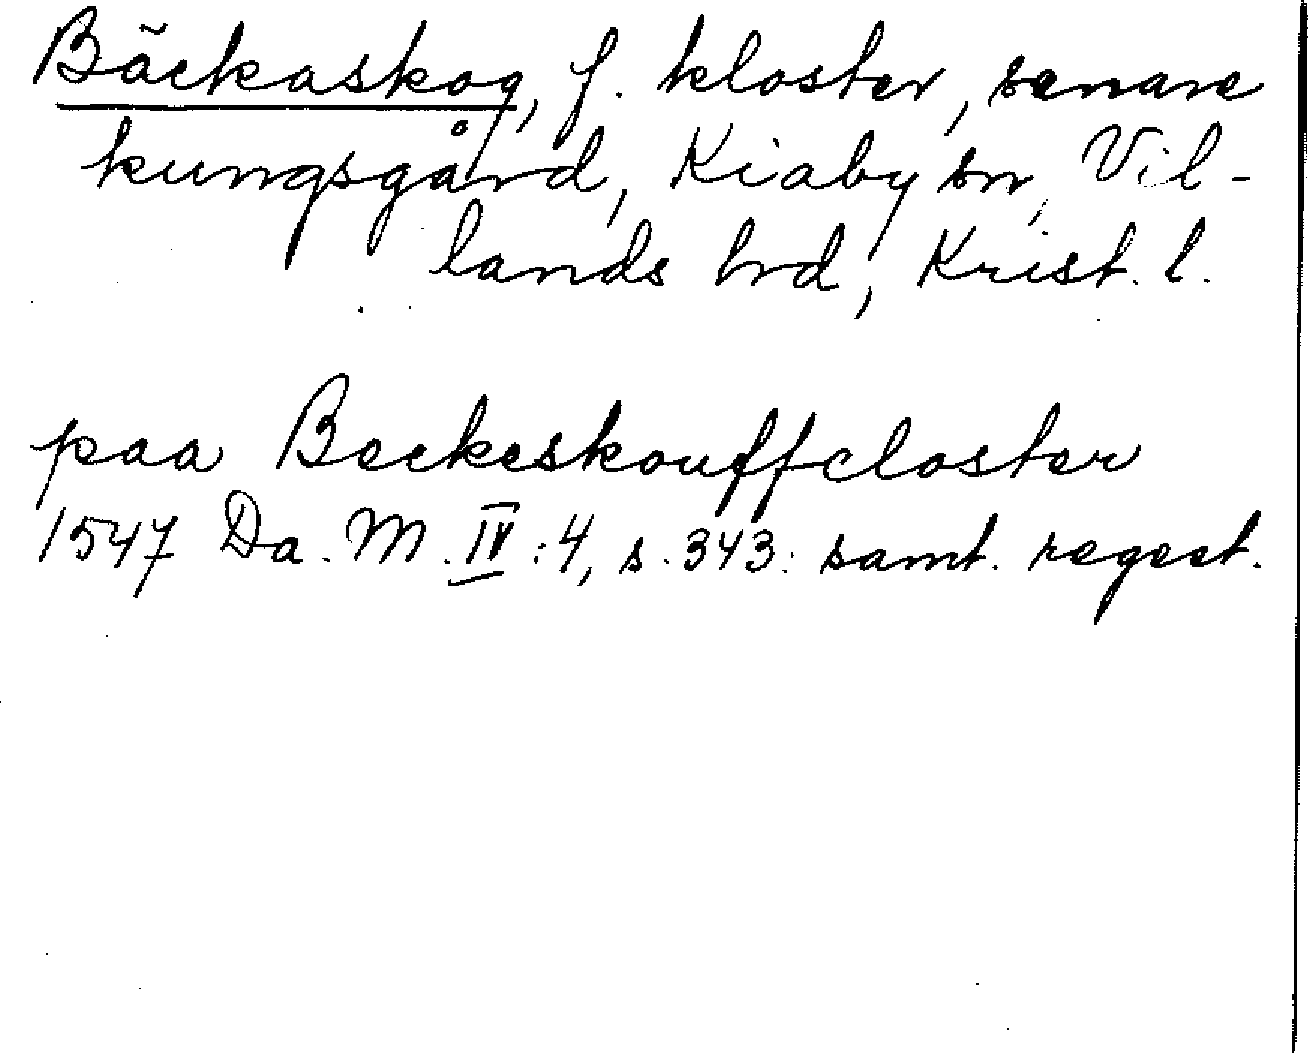 Bäckaskog, f. kloster, senare
kungsgård, Kiaby sn, Vil-
lands hrd, Krist. l.
paa Beckeskouffcloster
1547 Da. M. IV : 4, s. 343: samt. regest.